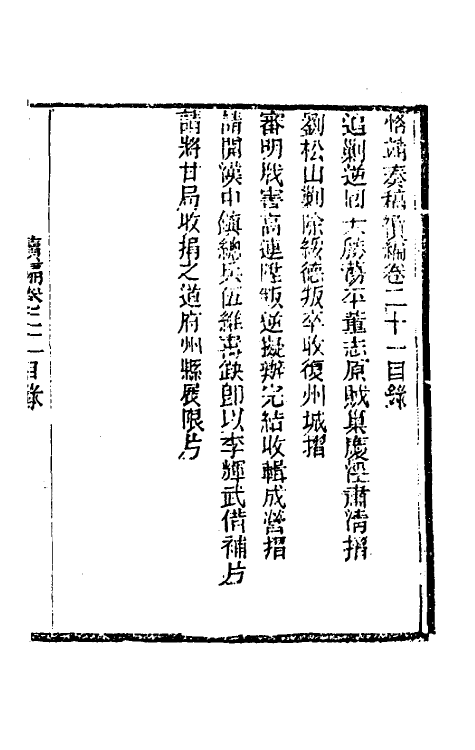 恪靖奏稿續編卷二十一目錄
追剿逆回大勝蕩平董志原賊巢慶涇肅清摺
劉松山剿除綏德叛卒收復州城摺
審明戕害高連陞叛逆擬辦完結收輯成營摺
請開漢中鎮總兵伍維壽缺卽以李輝武借補片
請將甘局收捐之道府州縣展限片
續編卷二十一目錄